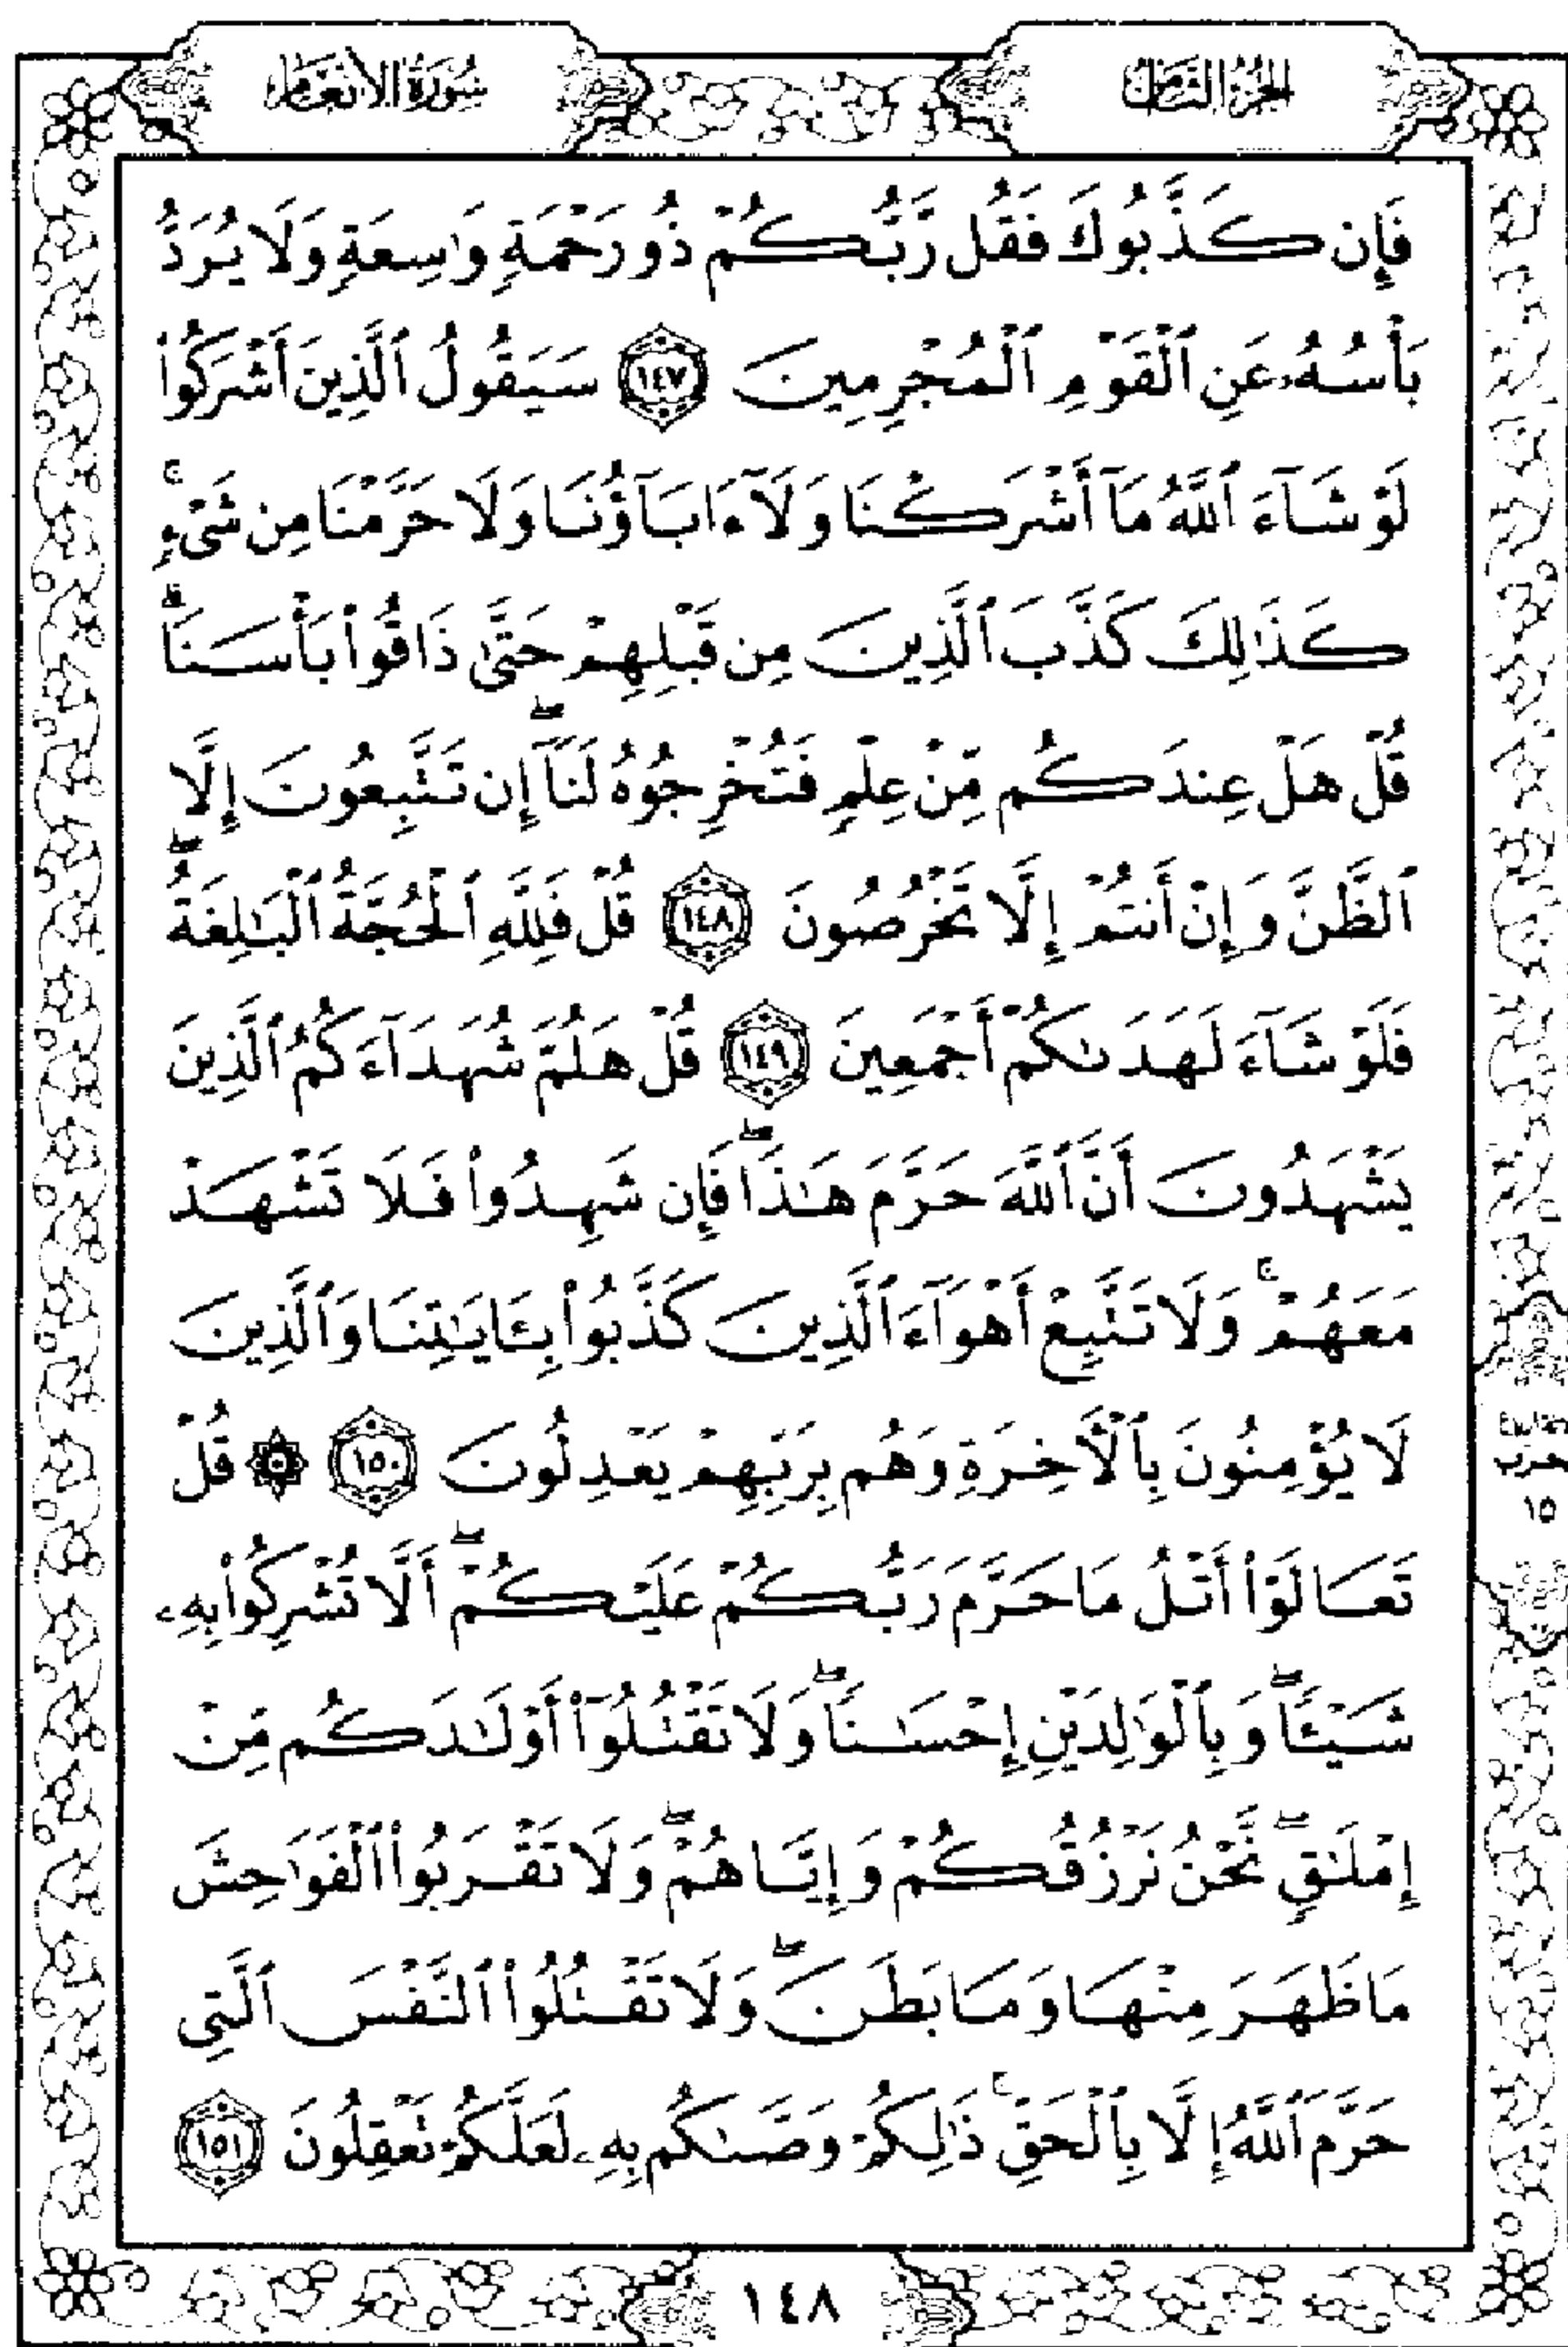 الجزء الثامن
سورة الأنعام
فَإِن كَذَّبُوكَ فَقُل رَّبُّكُمْ ذُو رَحْمَةٍ وَٰسِعَةٍ وَلَا يُرَدُّ
بَأْسُهُۥ عَنِ ٱلْقَوْمِ ٱلْمُجْرِمِينَ ١٤٧ سَيَقُولُ ٱلَّذِينَ أَشْرَكُوا۟
لَوْ شَآءَ ٱللَّهُ مَآ أَشْرَكْنَا وَلَآ ءَابَآؤُنَا وَلَا حَرَّمْنَا مِن شَىْءٍۚ
كَذَٰلِكَ كَذَّبَ ٱلَّذِينَ مِن قَبْلِهِمْ حَتَّىٰ ذَاقُوا۟ بَأْسَنَاۗ
قُلْ هَلْ عِندَكُم مِّنْ عِلْمٍ فَتُخْرِجُوهُ لَنَآۖ إِن تَتَّبِعُونَ إِلَّا
ٱلظَّنَّ وَإِنْ أَنتُمْ إِلَّا تَخْرُصُونَ ١٤٨ قُلْ فَلِلَّهِ ٱلْحُجَّةُ ٱلْبَٰلِغَةُۖ
فَلَوْ شَآءَ لَهَدَىٰكُمْ أَجْمَعِينَ ١٤٩ قُلْ هَلُمَّ شُهَدَآءَكُمُ ٱلَّذِينَ
يَشْهَدُونَ أَنَّ ٱللَّهَ حَرَّمَ هَٰذَاۖ فَإِن شَهِدُوا۟ فَلَا تَشْهَدْ
مَعَهُمْۚ وَلَا تَتَّبِعْ أَهْوَآءَ ٱلَّذِينَ كَذَّبُوا۟ بِـَٔايَٰتِنَا وَٱلَّذِينَ
لَا يُؤْمِنُونَ بِٱلْءَاخِرَةِ وَهُم بِرَبِّهِمْ يَعْدِلُونَ ١٥٠ ۞ قُلْ
تَعَالَوْا۟ أَتْلُ مَا حَرَّمَ رَبُّكُمْ عَلَيْكُمْۖ أَلَّا تُشْرِكُوا۟ بِهِۦ
شَيْـًٔاۖ وَبِٱلْوَٰلِدَيْنِ إِحْسَٰنًاۖ وَلَا تَقْتُلُوٓا۟ أَوْلَٰدَكُم مِّنْ
إِمْلَٰقٍۖ نَّحْنُ نَرْزُقُكُمْ وَإِيَّاهُمْۖ وَلَا تَقْرَبُوا۟ ٱلْفَوَٰحِشَ
مَا ظَهَرَ مِنْهَا وَمَا بَطَنَۖ وَلَا تَقْتُلُوا۟ ٱلنَّفْسَ ٱلَّتِى
حَرَّمَ ٱللَّهُ إِلَّا بِٱلْحَقِّۚ ذَٰلِكُمْ وَصَّىٰكُم بِهِۦ لَعَلَّكُمْ تَعْقِلُونَ ١٥١
حزب
١٥
١٤٨